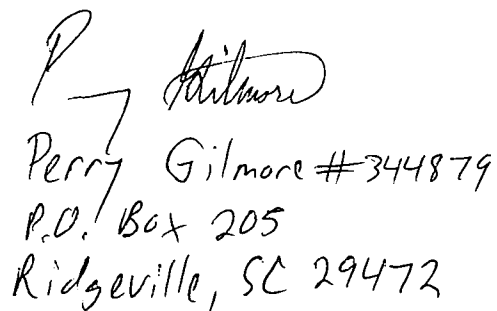 Perry Gilmore
Perry Gilmore #344879
P.O. Box 205
Ridgeville, SC 29472